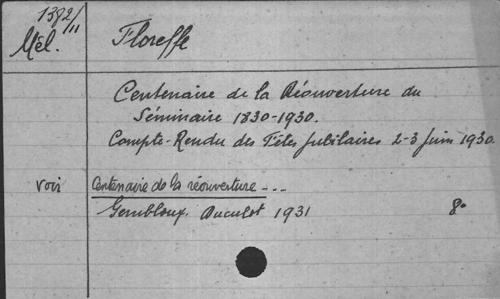 1392/11
Mél.
Floreffe
Centenaire de la Réouverture du
Séminaire 1830-1930.
Compte-Rendu des Fêtes Jubilaires 2-3 Juin 1930.
voir Centenaire de la réouverture ---
Gembloux. Duculot 1931 8°